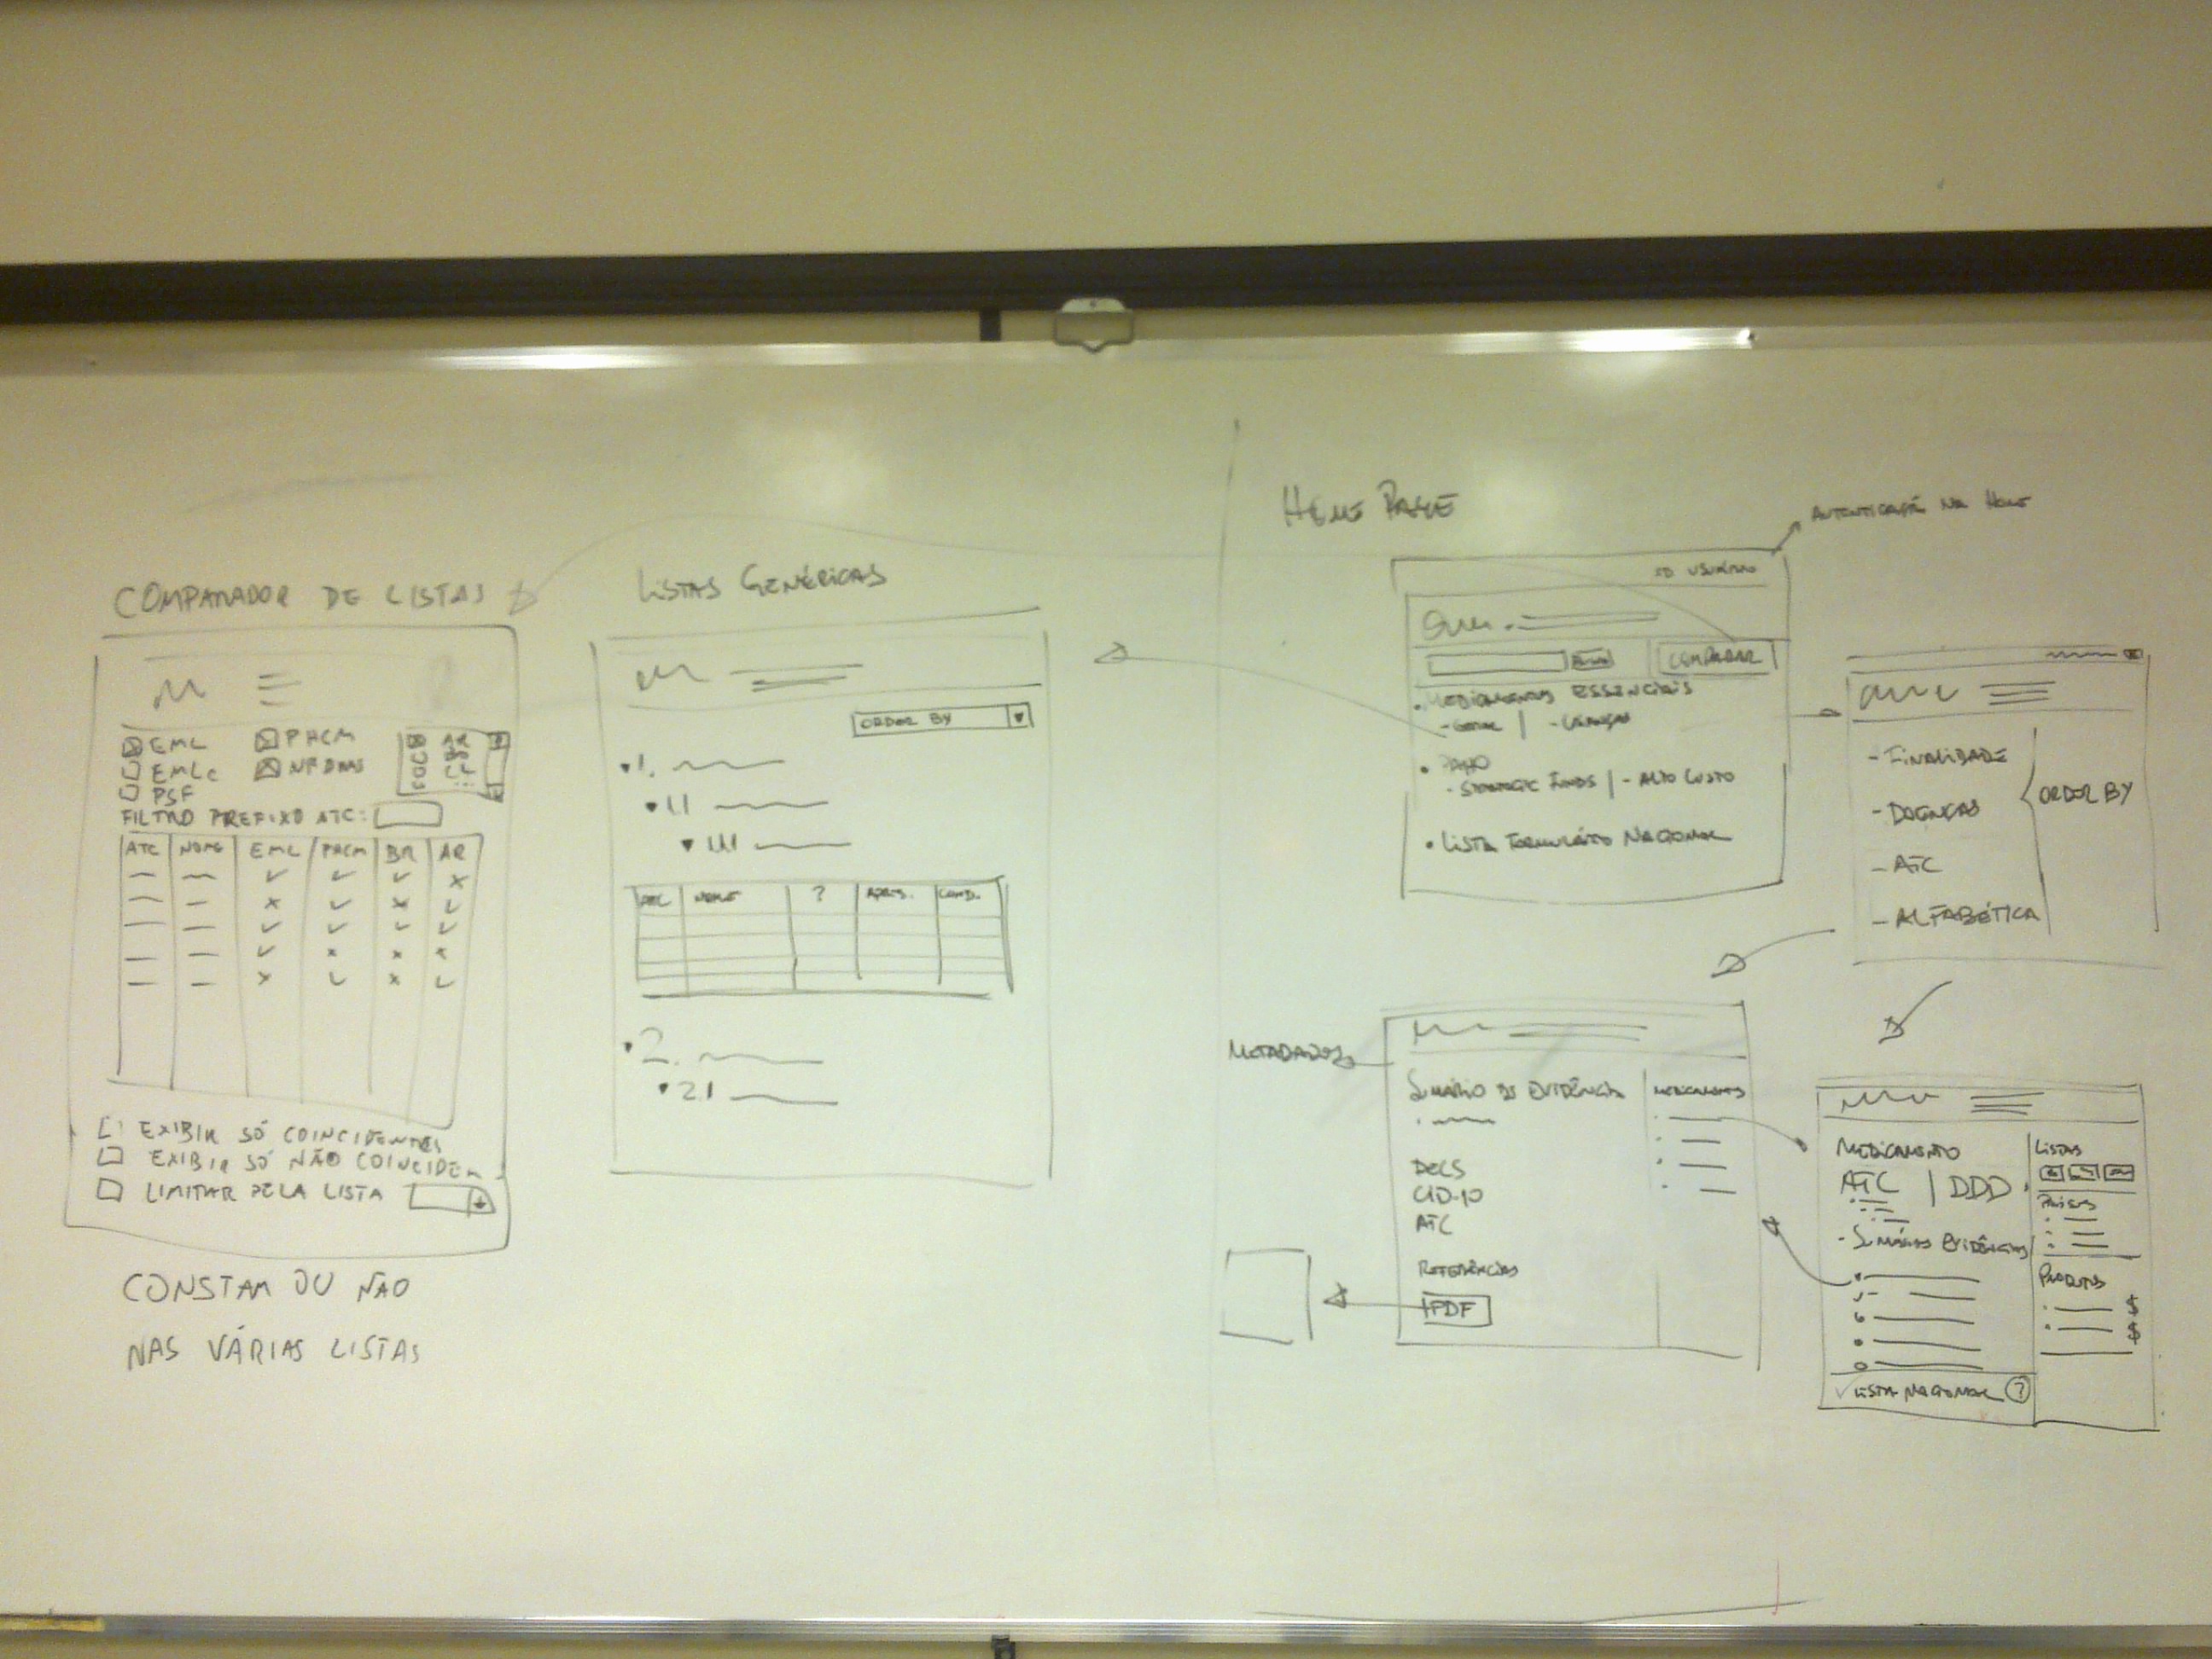 COMPARADOR DE LISTAS
EML
EMLc
PSF
PACM
AR
FILTRO PREFIXO ATC:
ATC NOME EML PACM BR AR
EXIBIR SÓ COINCIDENTES
EXIBIR SÓ NÃO COINCIDEM
LIMITAR PELA LISTA
CONSTAM OU NÃO
NAS VÁRIAS LISTAS
LISTAS GENÉRICAS
ORDER BY
1.
1.1
1.1.1
ATC NOME ? APRES. COND.
2.
2.1
HOME PAGE
AUTENTICAÇÃO NA HOME
ID USUÁRIO
COMPARAR
• MEDICAMENTOS ESSENCIAIS
- GERAL | - CRIANÇAS
• PAHO
- STRATEGIC FUNDS | - ALTO CUSTO
• LISTA FORMULÁRIO NACIONAL
- FINALIDADE
- DOENÇAS
- ATC
- ALFABÉTICA
ORDER BY
METADADOS
SUMÁRIO DE EVIDÊNCIA
MEDICAMENTOS
DECS
CID-10
ATC
REFERÊNCIAS
PDF
MEDICAMENTO
ATC | DDD
- SUMÁRIOS EVIDÊNCIAS
LISTA NACIONAL ?
LISTAS
PAÍSES
PRODUTOS
$
$